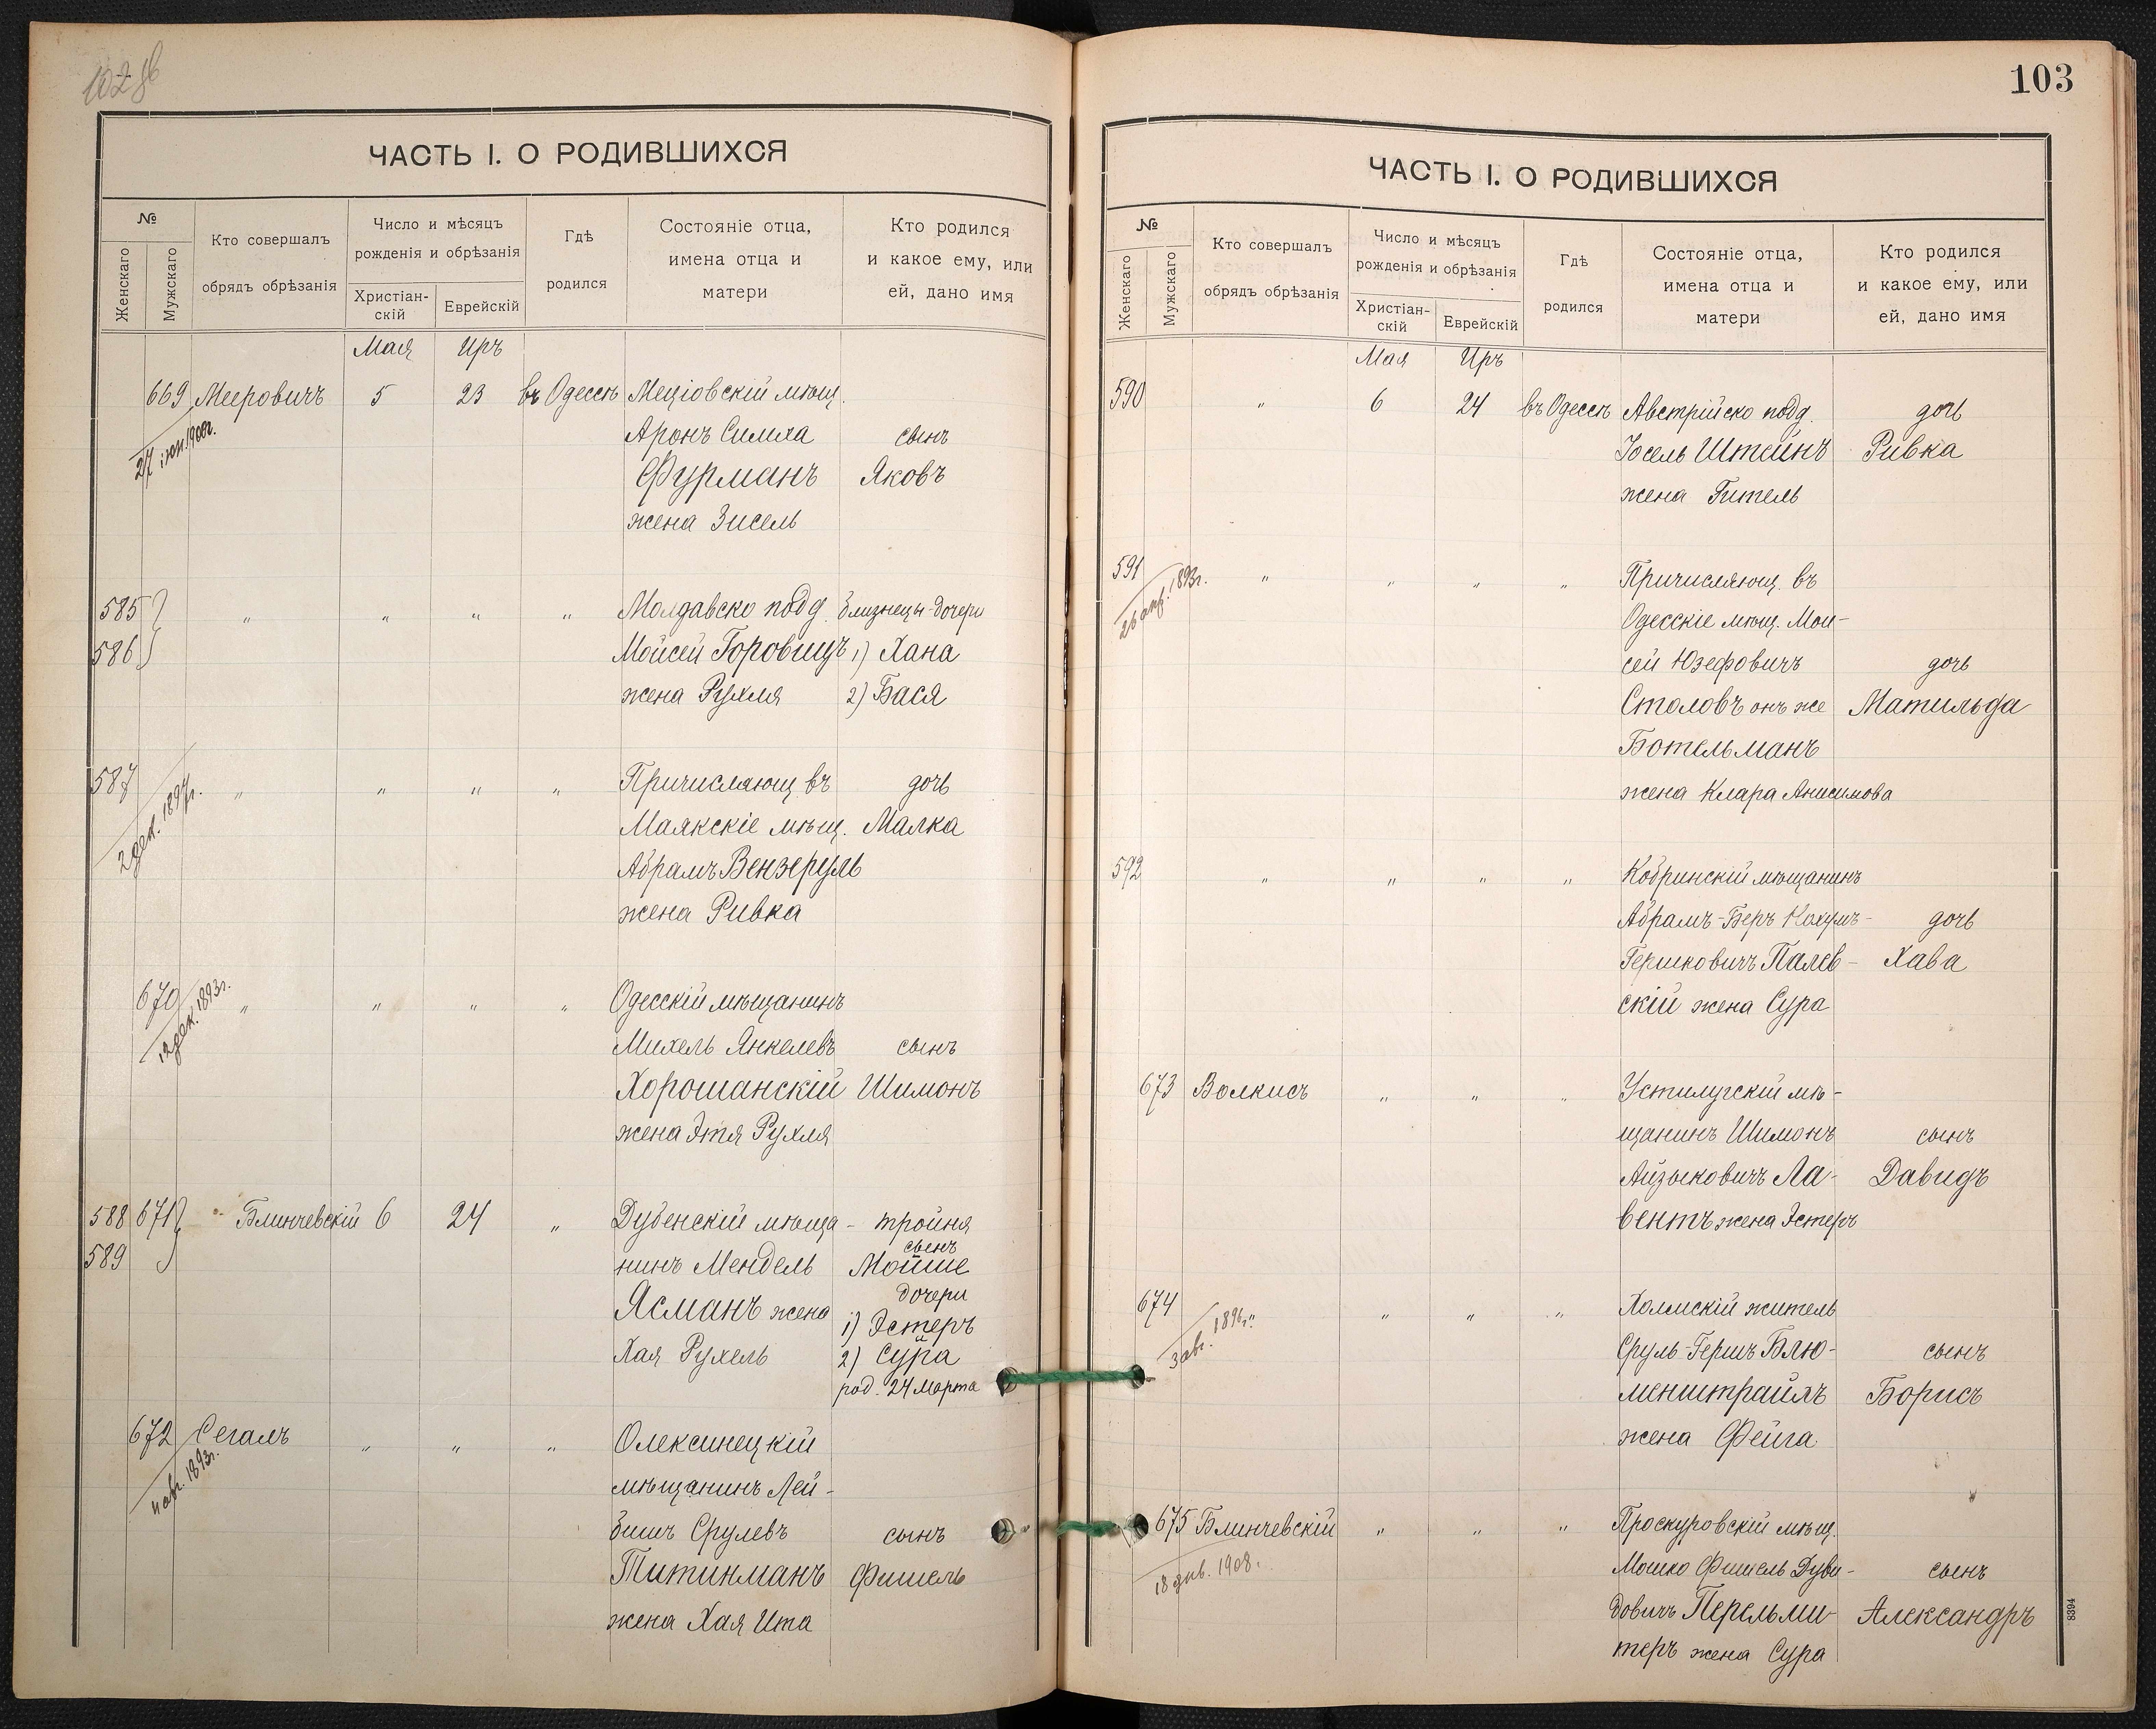 102 об
ЧАСТЬ I. О РОДИВШИХСЯ
№
Женскаго
Мужскаго
Кто совершалъ
обрядъ обрѣзанія
Число и мѣсяцъ
рожденія и обрѣзанія
Христіан-
скій
Еврейскій
Гдѣ
родился
Состояніе отца,
имена отца и
матери
Кто родился
и какое ему, или
ей, дано имя
Мая Иръ
669 Мееровичъ 5 23 въ Одессѣ Меціовскій мѣщ.
27 іюн. 1900г.
Аронъ Симха сынъ
Фурманъ Яковъ
жена Зисель
585 " " " " Молдавско подд. близнецы-дочери
586 Мойсей Горовицъ 1) Хана
жена Рухля 2) Бася
587 " " " " Причисляющ. въ дочь
2 дек. 1897г.
Маякскіе мѣщ. Малка
Абрамъ Вензеруль
жена Ривка
670 " " " " Одесскій мѣщанинъ
12 дек. 1893г.
Михель Янкелевъ сынъ
Хорошанскій Шимонъ
жена Этя Рухля
588 671 Блинчевскій 6 24 " Дубенскій мѣща- тройня
589 сынъ
нинъ Мендель Мойше
дочери
Ясманъ жена 1) Эстеръ
и
Хая Рухель 2) Сура
род. 24 Марта
672 Сегалъ " " " Олексинецкій
11 авг. 1893г.
мѣщанинъ Лей-
бишъ Срулевъ сынъ
Титинманъ Фишель
жена Хая Ита
103
ЧАСТЬ I. О РОДИВШИХСЯ
№
Женскаго
Мужскаго
Кто совершалъ
обрядъ обрѣзанія
Число и мѣсяцъ
рожденія и обрѣзанія
Христіан-
скій
Еврейскій
Гдѣ
родился
Состояніе отца,
имена отца и
матери
Кто родился
и какое ему, или
ей, дано имя
Мая Иръ
590 " 6 24 въ Одессѣ Австрійско подд. дочь
Іосель Штейнъ Ривка
жена Гитель
591 " " " " Причисляющ. въ
26 апр. 1893г.
Одесскіе мѣщ. Мои-
сей Юзефовичъ дочь
Столовъ онъ же Матильда
Ботельманъ
жена Клара Анисимова
592 " " " " Кобринскій мѣщанинъ
Абрамъ-Беръ Нахумъ- дочь
Гершковичъ Палев- Хава
скій жена Сура
673 Волкисъ " " " Устилугскій мѣ-
щанинъ Шимонъ сынъ
Айзыковичъ Ла- Давидъ
вентъ жена Эстеръ
674 " " " " Холмскій житель
3 авг. 1896г.
Сруль-Гершъ Блю- сынъ
менштраймъ Борисъ
жена Фейга
675 Блинчевскій " " " Проскуровскій мѣщ.
18 янв. 1908г.
Мошко Фишель Дуви- сынъ
довичъ Перельми- Александръ
теръ жена Сура
8394